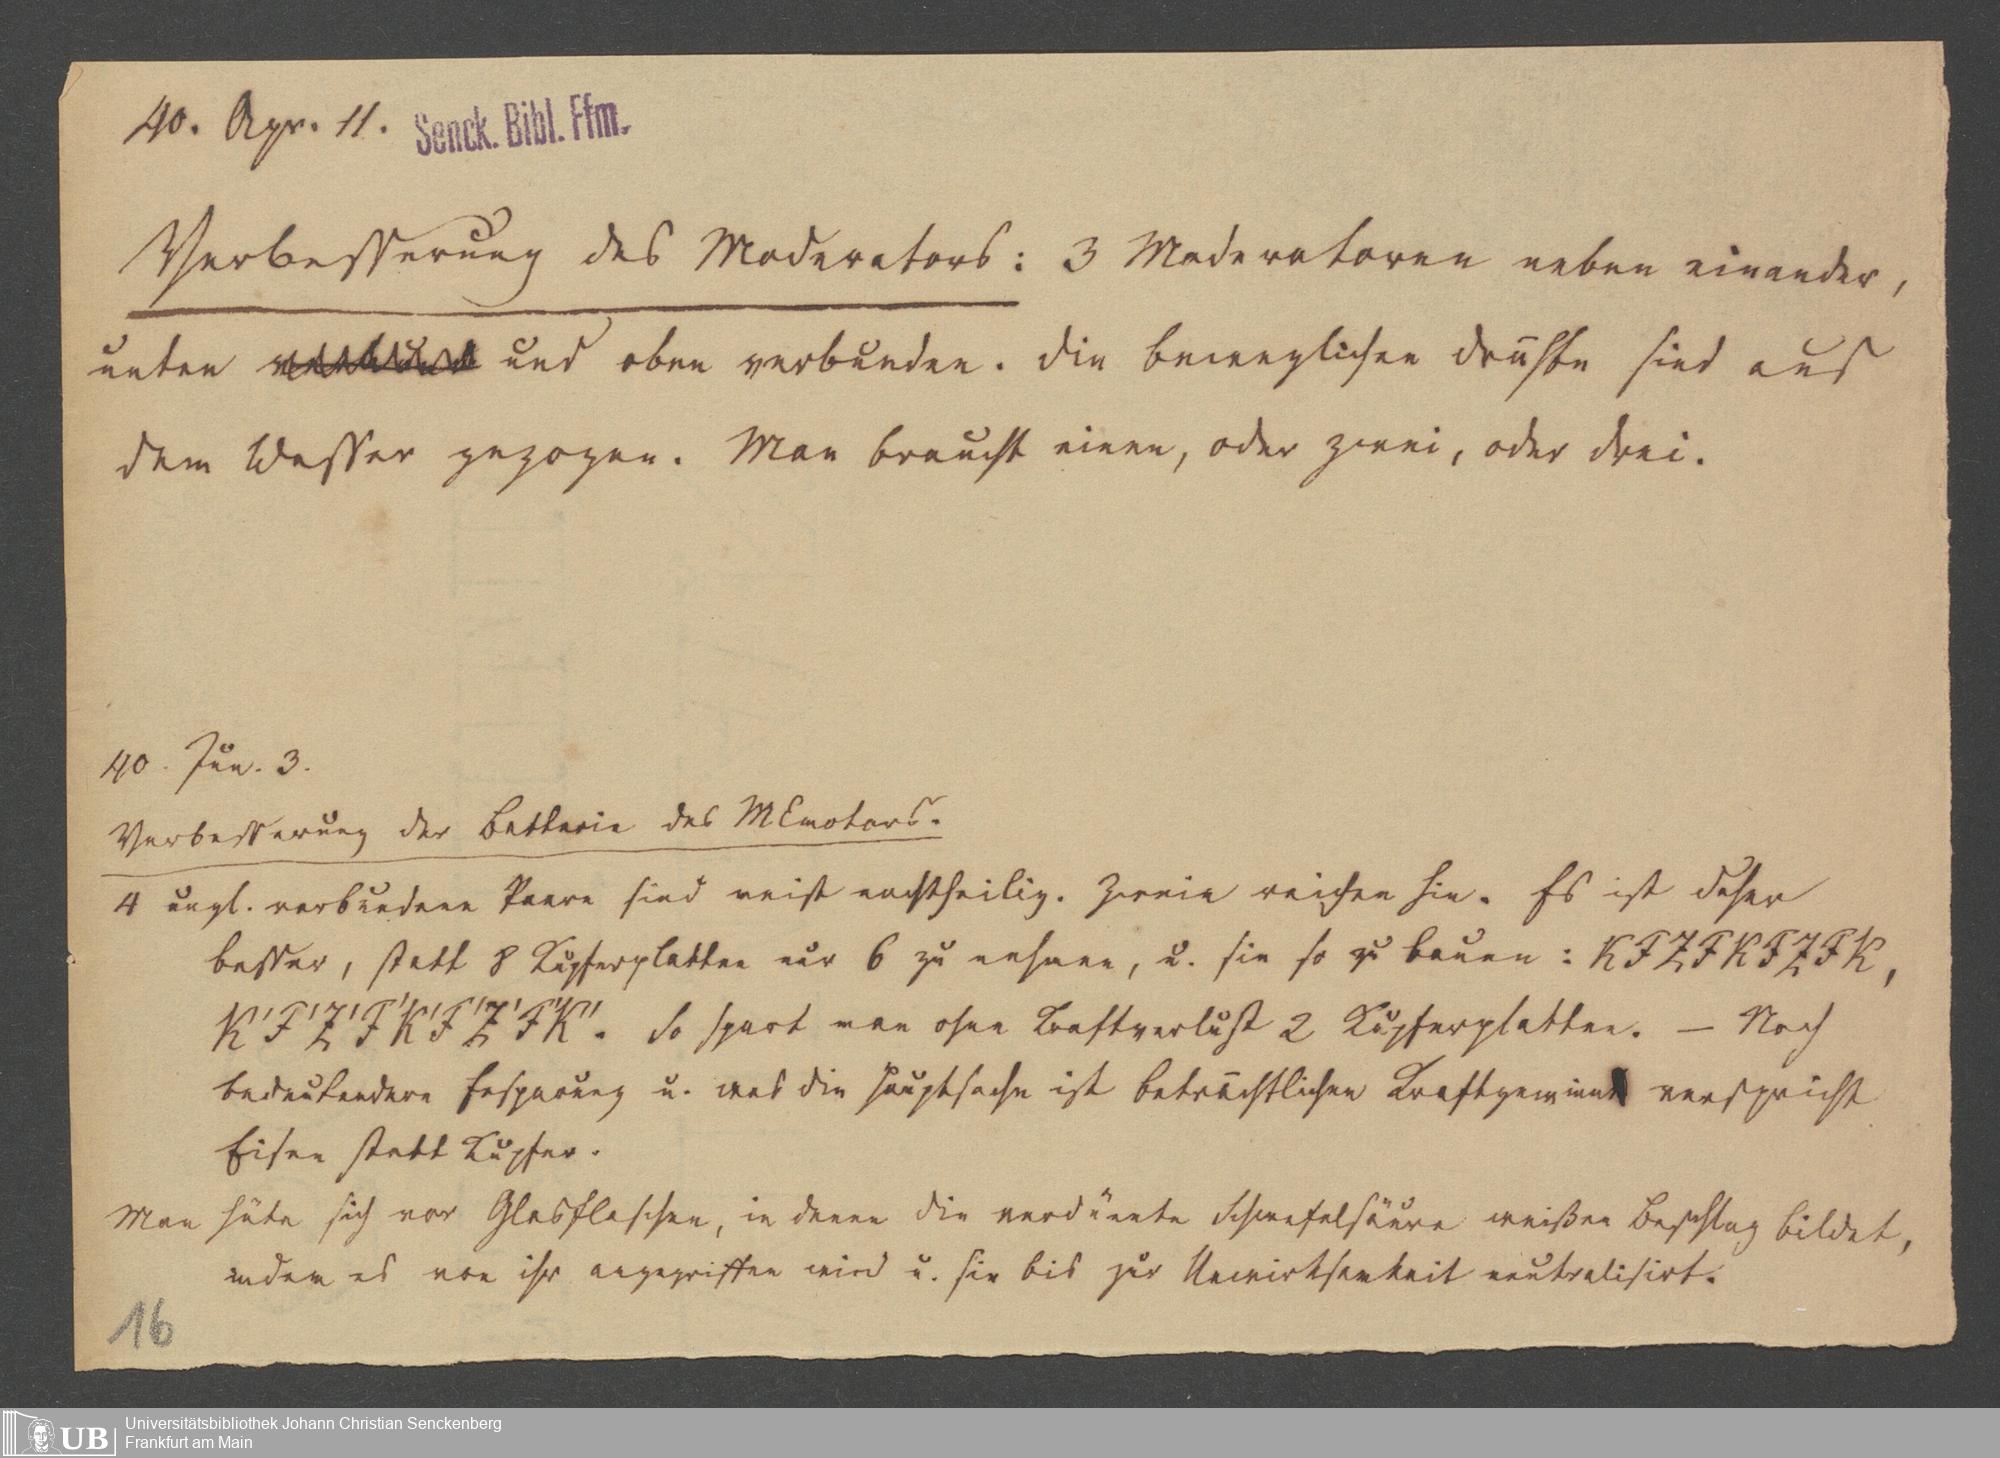 40. Apr. 11. Senck. Bibl. Ffm.
Verbesserung des Moderators: 3 Moderatoren neben einander,
unten verbund und oben verbunden. Die beweglichen Drähte sind aus
dem Wasser gezogen. Man braucht einen, oder zwei, oder drei.
40. Jun. 3.
Verbesserung der Batterie des MEmotors.
4 ungl. verbundene Paare sind meist nachtheilig. Zweie reichen hin. Es ist daher
besser, statt 8 Kupferplatten nur 6 zu nehmen, u. sie so zu bauen: KFZFKFZFK,
K'F'Z'F'K'F'Z'F'K'. So spart man ohne Kraftverlust 2 Kupferplatten. — Noch
bedeutendere Ersparung u. was die Hauptsache ist beträchtlichen Kraftgewinn verspricht
Eisen statt Kupfer.
Man hüte sich vor Glasflaschen, in denen die verdünnte Schwefelsäure weißen Beschlag bildet,
indem es von ihr angegriffen wird u. sie bis zur Unwirksamkeit neutralisirt.
16
UB Universitätsbibliothek Johann Christian Senckenberg
Frankfurt am Main